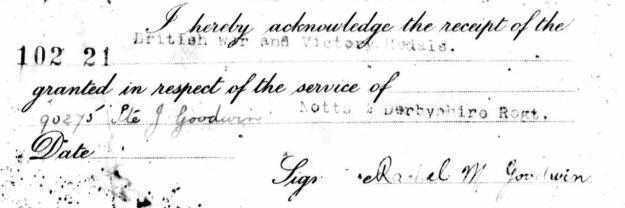 I hereby acknowledge the receipt of the
102 21 British War and Victory Medals.
granted in respect of the service of
90275 Pte J Goodwin Notts & Derbyshire Regt.
Date
Sigr Rachel M Goodwin